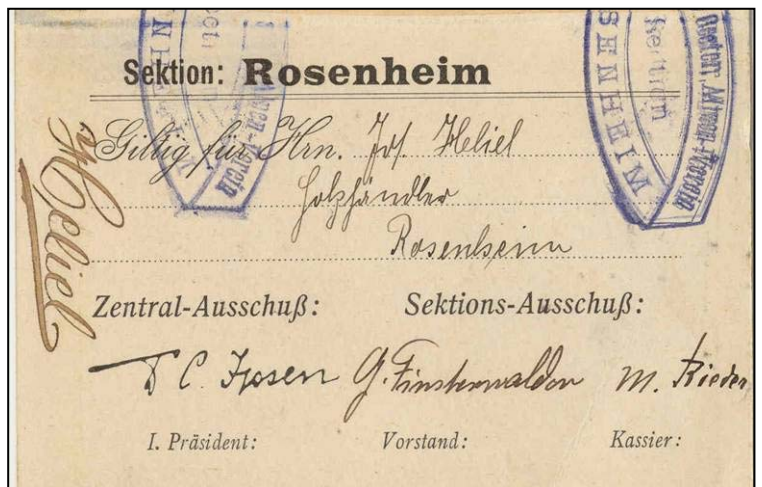 Sektion: Rosenheim
Giltig für Hrn. Jos. Heliel
Holzhändler
Rosenheim
Heliel
Zentral-Ausschuß: Sektions-Ausschuß:
G. Finsterwalder M. Rieder
I. Präsident: Vorstand: Kassier:
ROSENHEIM
Sektion
Oesterr. Alpen-Verein
Alpen-Verein